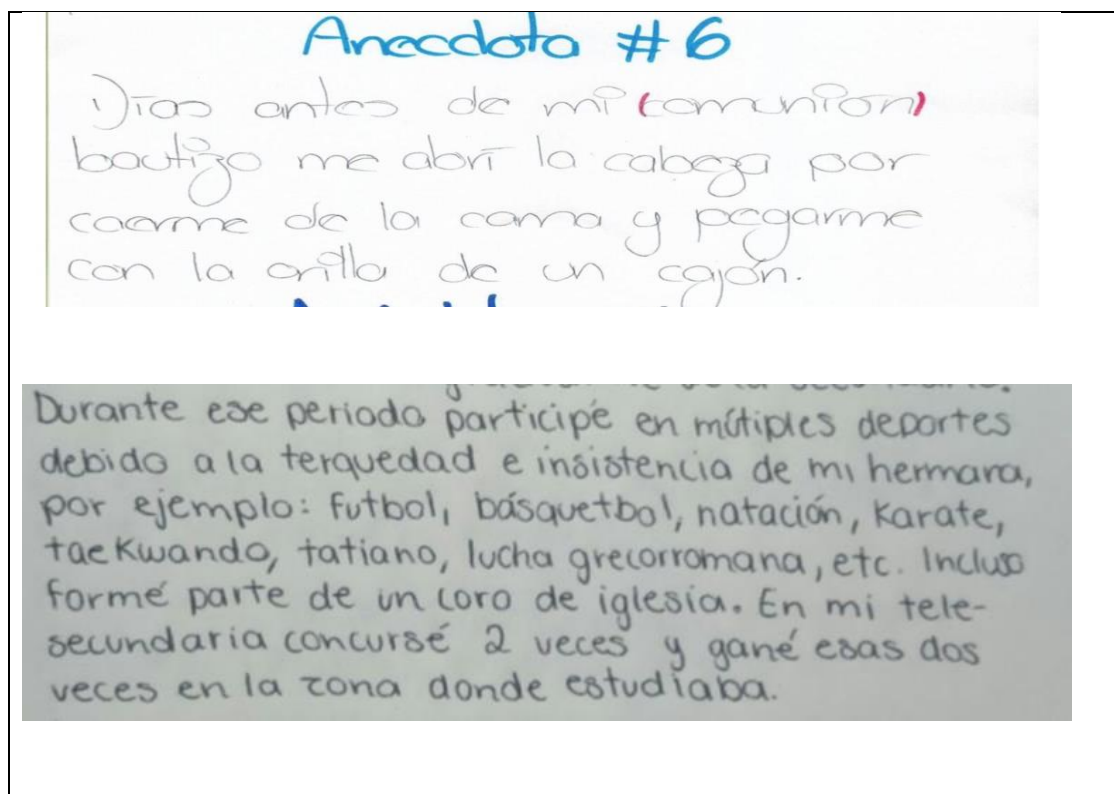 Anecdota #6
Días antes de mi (comunión)
bautizo me abrí la cabeza por
caerme de la cama y pegarme
con la orilla de un cajón.
Durante ese periodo participé en mútiples deportes
debido a la terquedad e insistencia de mi hermana,
por ejemplo: futbol, básquetbol, natación, Karate,
taeKwando, tatiano, lucha grecorromana, etc. Incluso
formé parte de un coro de iglesia. En mi tele-
secundaria concursé 2 veces y gané esas dos
veces en la zona donde estudiaba.